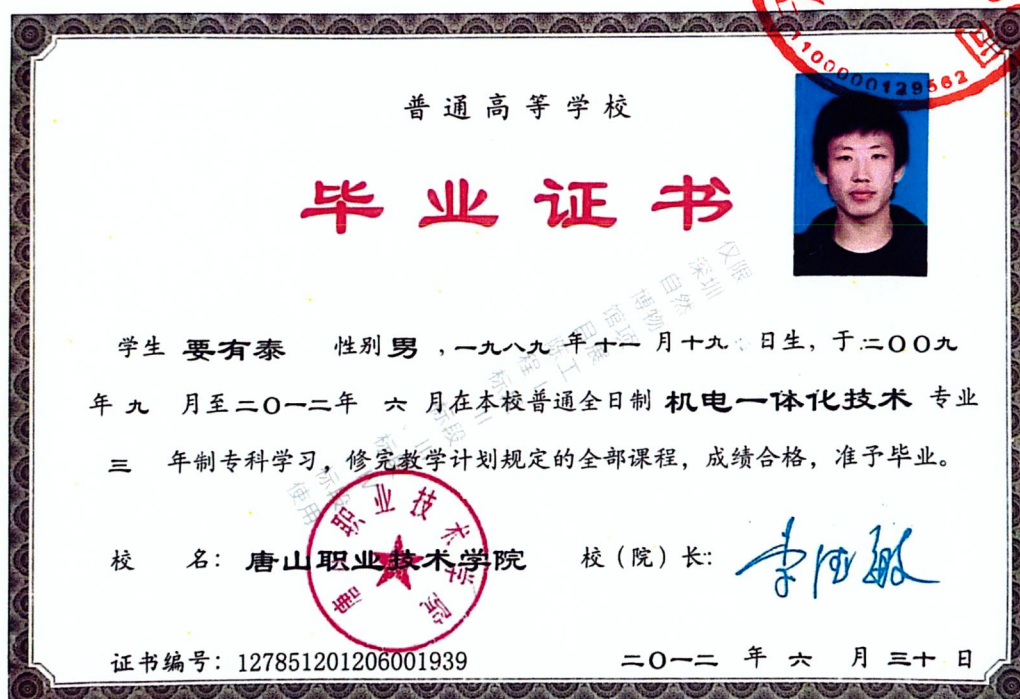 1100000129562
普通高等学校
毕业证书
学生 要有泰 性别 男 ,一九八九 年 十一 月 十九 日生, 于 二〇〇九
年 九 月至 二〇一二 年 六 月在本校普通全日制 机电一体化技术 专业
三 年制专科学习, 修完教学计划规定的全部课程, 成绩合格, 准予毕业。
校 名: 唐山职业技术学院 校(院)长:
唐山职业技术学院
证书编号: 127851201206001939 二〇一二 年 六 月 三十 日
仅限
深圳
自然
博物
馆项
使用